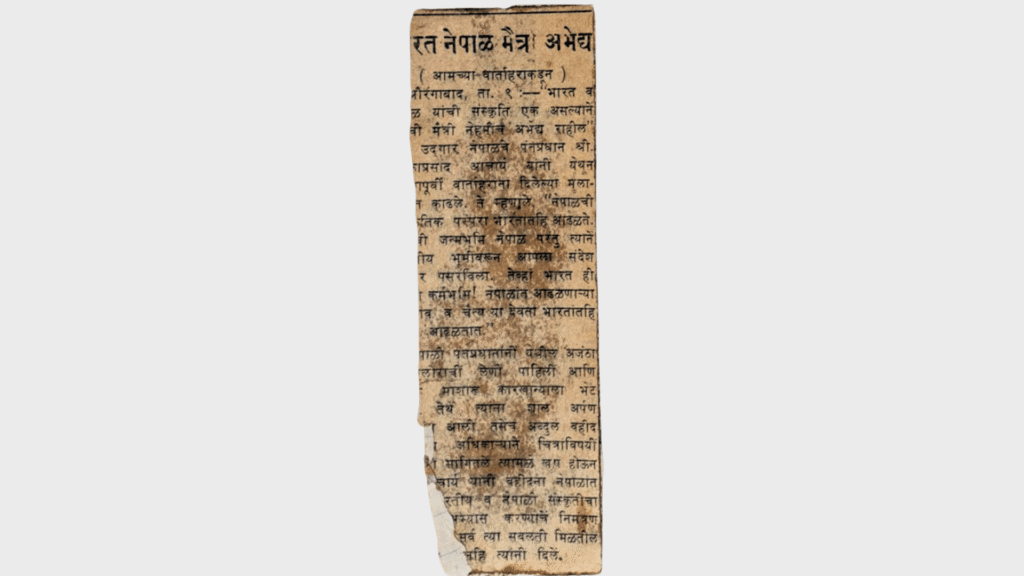 रत नेपाळ मैत्री अभेद्य
( आमच्या वार्ताहराकडून )
ता. ९ :— "भारत व
ळ यांची संस्कृति एक असल्याने
मैत्री नेहमीच अभेद्य राहील"
उद्गार नेपाळचे पंतप्रधान श्री.
आचार्य यांनी येथून
वार्ताहरांना दिलेल्या मुला-
त काढले. ते म्हणाले "नेपाळची
तिक परंपरा भारतातहि आढळते.
जन्मभूमि नेपाळ परंतु त्याने
तीय भूमीवरून आपला संदेश
र पसरविला. तेव्हां भारत ही
कर्मभूमि! नेपाळांत आढळणाऱ्या
व चैत्य या देवता भारतातहि
आढळतात."
पंतप्रधानांनीं येथील अजंठा
लेणीं पाहिलीं आणि
कारखान्याला भेट
तेथें त्यांना शाल अर्पण
आली तसेच अब्दुल वहीद
अधिकाऱ्याने चित्राविषयी
सांगितलें त्यामुळे खूष होऊन
यांनी वहीदना नेपाळांत
रतीय व नेपाळी संस्कृतीचा
करण्याचें निमंत्रण
सर्व त्या सवलती मिळतील
त्यांनी दिलें.